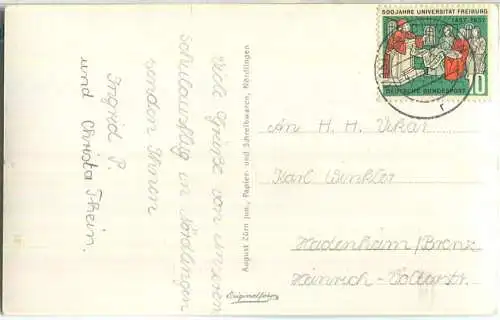 500 JAHRE UNIVERSITÄT FREIBURG
1457-1957
DEUTSCHE BUNDESPOST
10
Viele Grüße von unserem
Schulausflug in Nördlingen
senden Ihnen
Ingrid P.
und Christa Thein.
August Zürn jun., Papier- und Schreibwaren, Nördlingen
Originalfoto
An H. H. Vikar
Karl Winkler
Heidenheim/Brenz
Heinrich-Voelter-str.